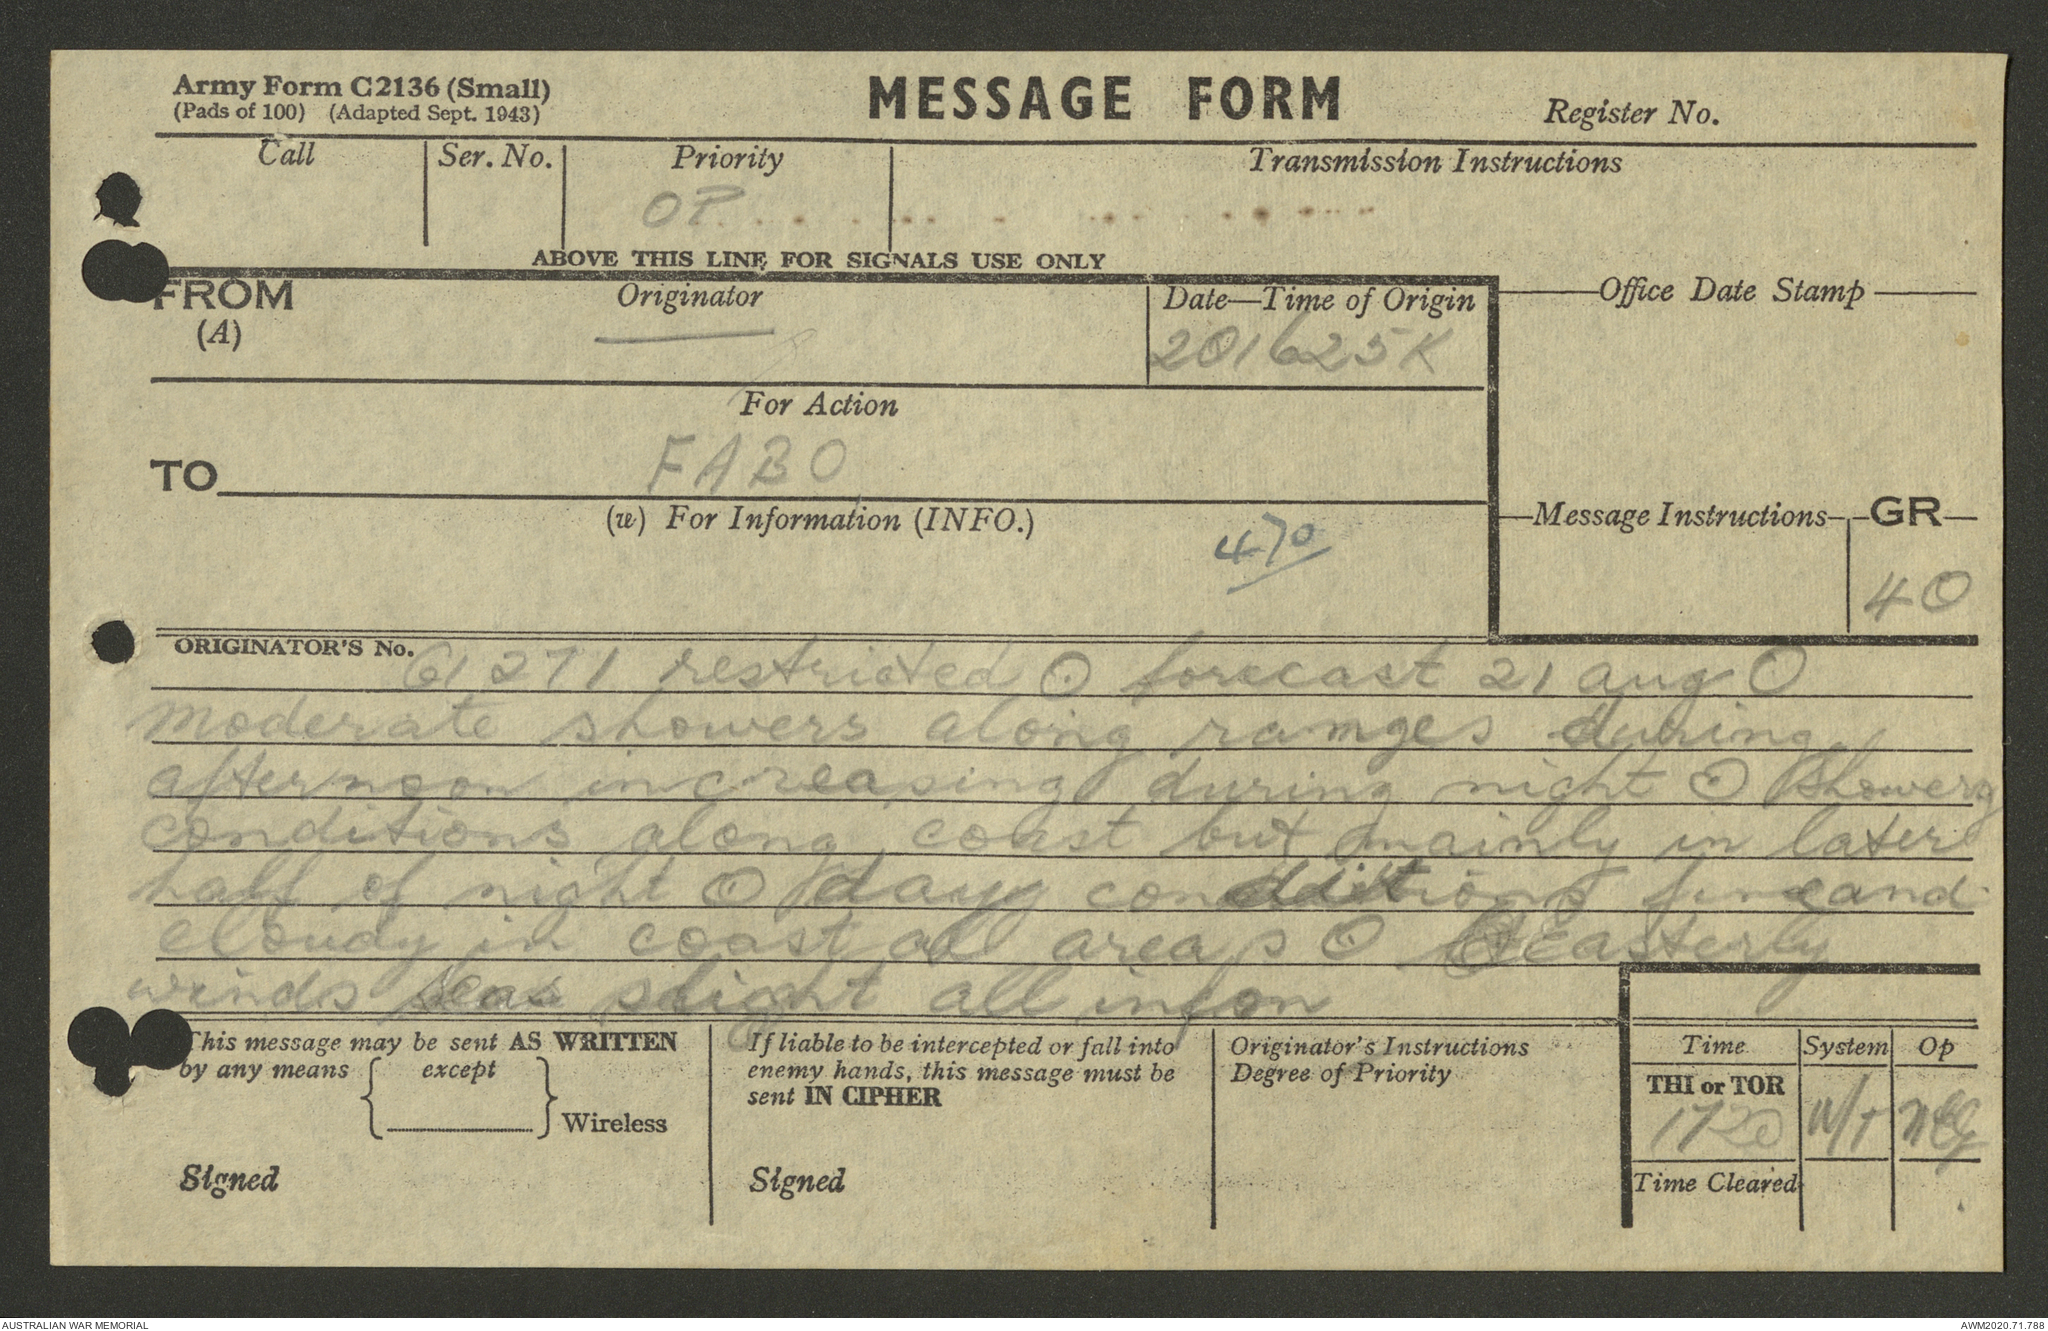 Army Form C2136 (Small)
(Pads of 100) (Adapted Sept. 1943)
MESSAGE FORM
Register No.
Call
Ser. No.
Priority
Transmission Instructions
OP
ABOVE THIS LINE FOR SIGNALS USE ONLY
FROM
(A)
Originator
Date—Time of Origin
Office Date Stamp
201625K
For Action
TO
FABO
(w) For Information (INFO.)
Message Instructions
GR
470
40
ORIGINATOR'S No.
G1271 restricted O forecast 21 aug O
moderate showers along ranges during
afternoon increasing during night O showery
conditions along coast but mainly in later
half of night O day conditions fine and
cloudy in coastal areas O Easterly
winds seas slight all infon
This message may be sent AS WRITTEN
by any means except
Wireless
Signed
If liable to be intercepted or fall into
enemy hands, this message must be
sent IN CIPHER
Signed
Originator's Instructions
Degree of Priority
Time System Op
THI or TOR
1720 W/T
Time Cleared
AUSTRALIAN WAR MEMORIAL
AWM2020.71.788